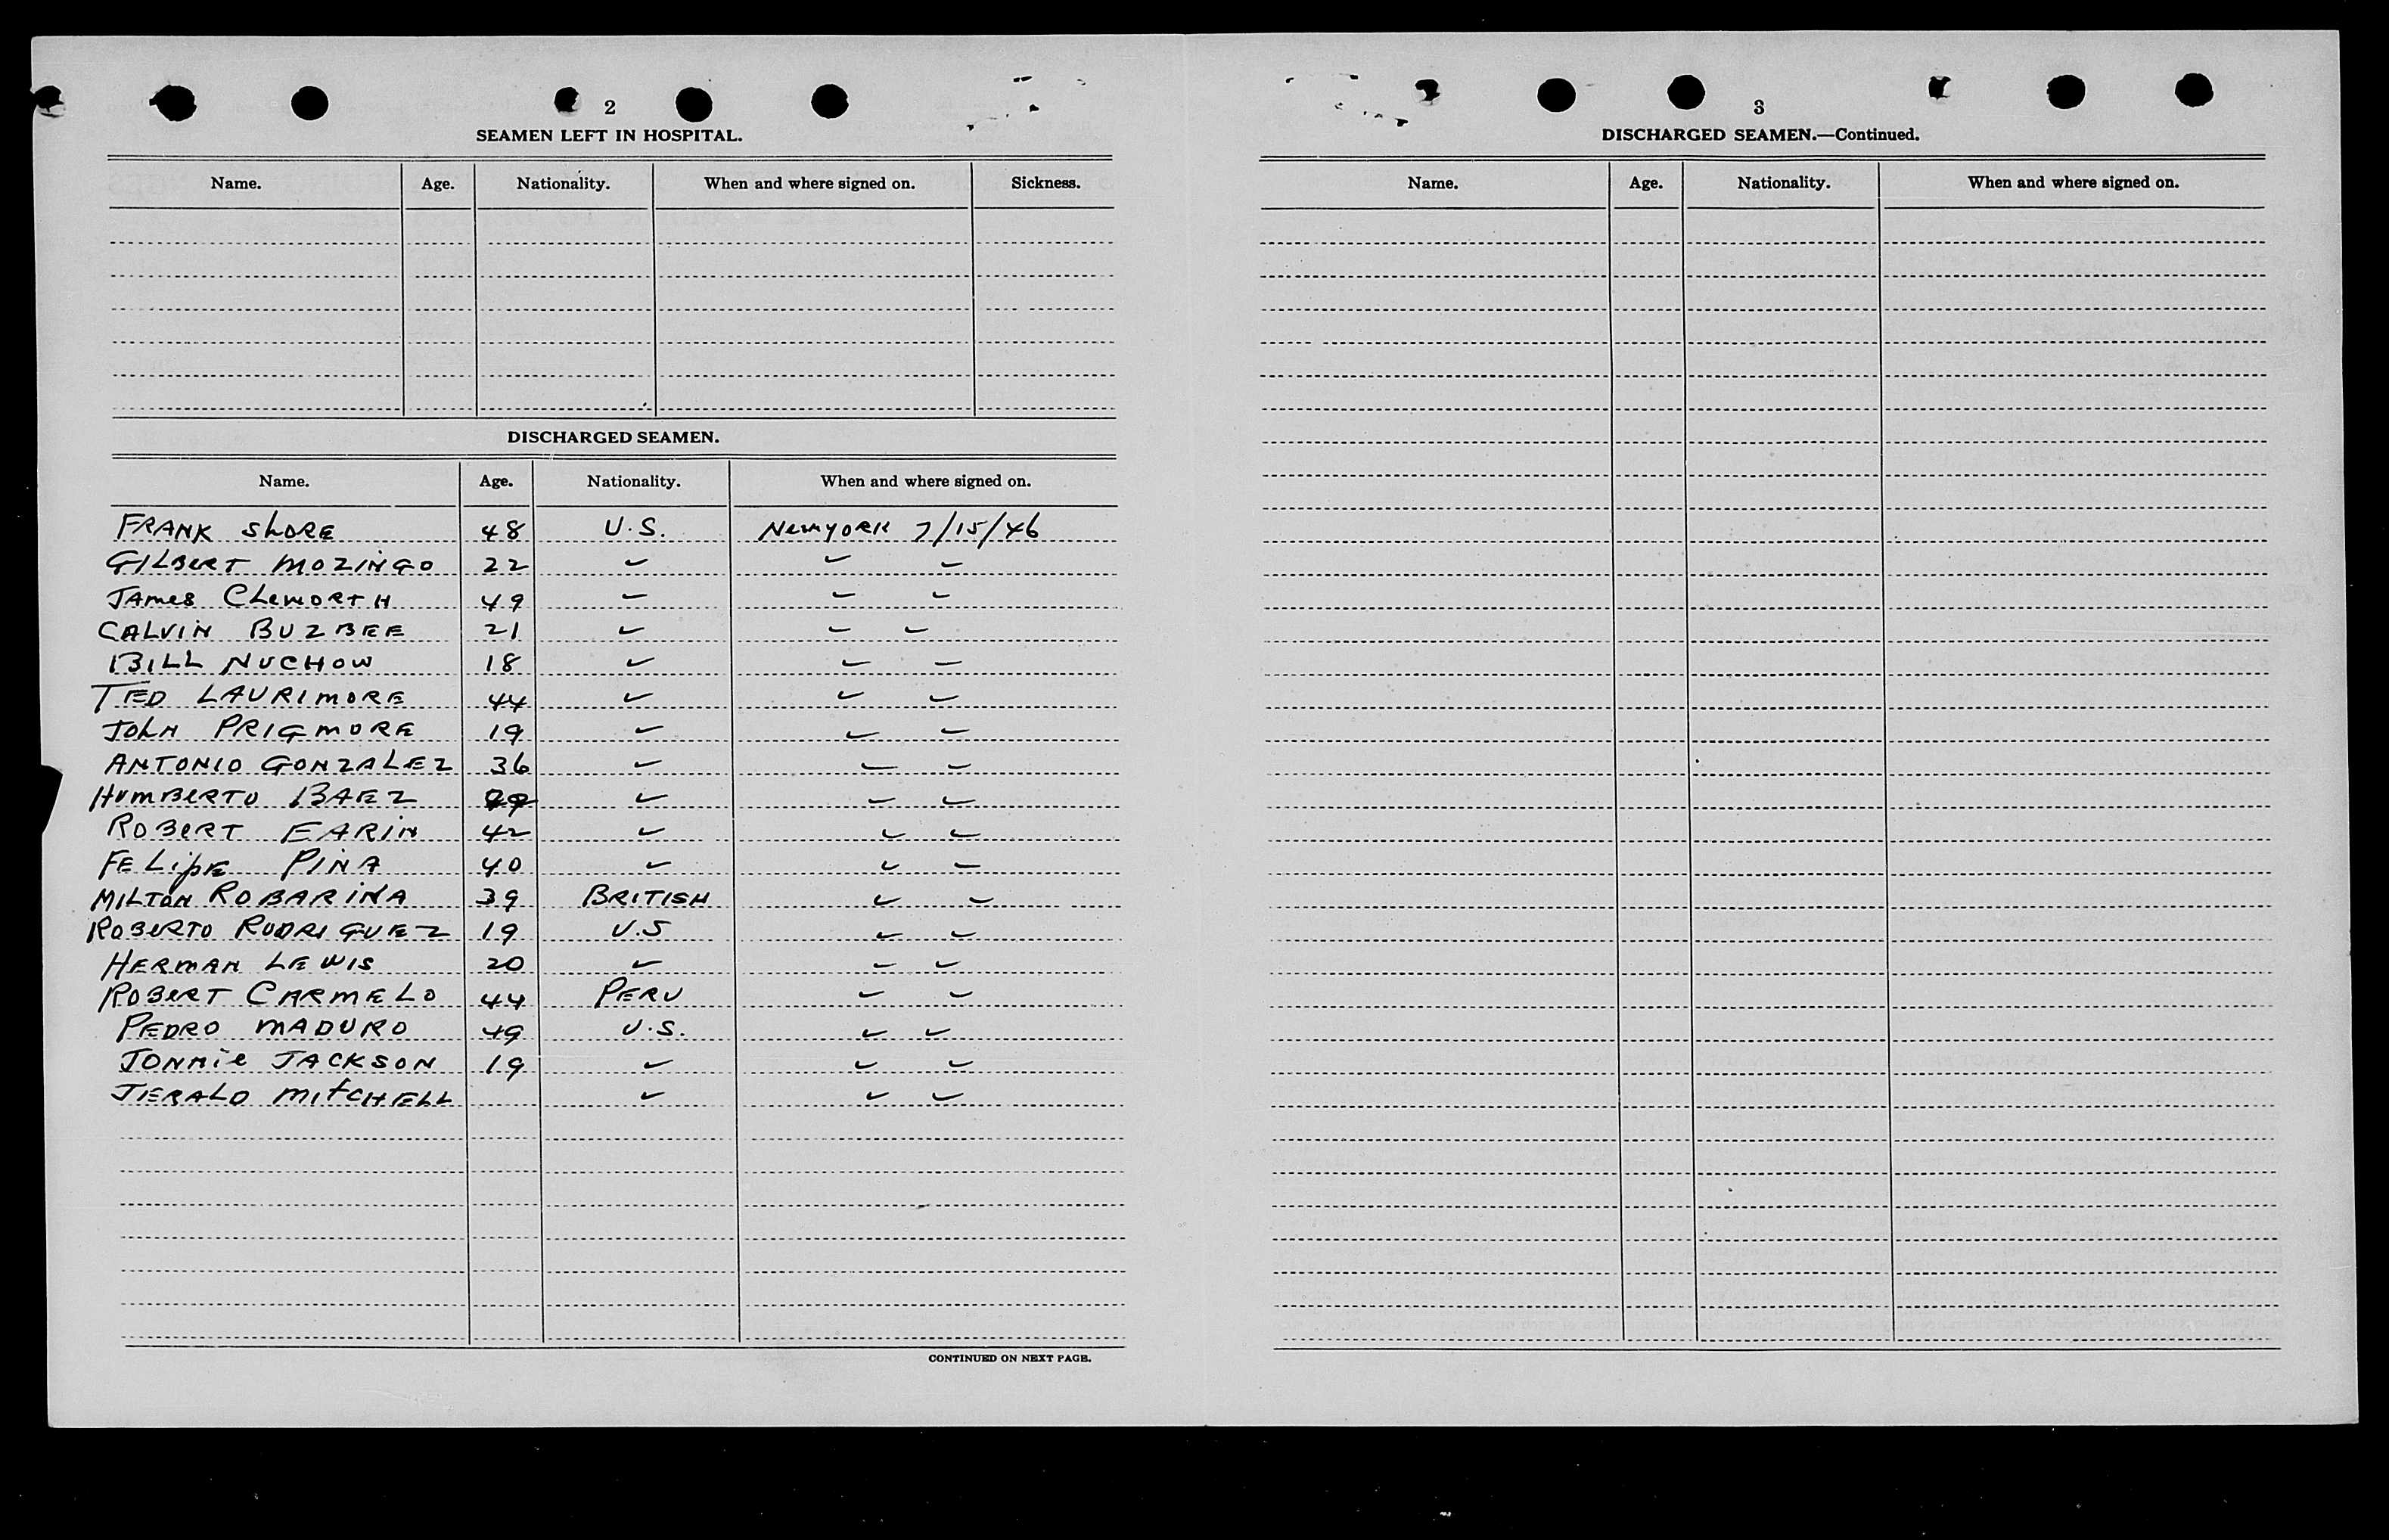 2
SEAMEN LEFT IN HOSPITAL.
Name. Age. Nationality. When and where signed on. Sickness.
DISCHARGED SEAMEN.
Name. Age. Nationality. When and where signed on.
FRANK ShORE 48 U.S. NewYORK 7/15/46
GILBERT MOZINGO 22 ✓ ✓ ✓
JAMES CLEWORTH 49 ✓ ✓ ✓
CALVIN BUZBEE 21 ✓ ✓ ✓
BILL NUCHOW 18 ✓ ✓ ✓
TED LAURIMORE 44 ✓ ✓ ✓
JOhN PRIGMORE 19 ✓ ✓ ✓
ANTONIO GONZALEZ 36 ✓ ✓ ✓
HUMBERTO BAEZ ✓ ✓ ✓
ROBERT EARIN 42 ✓ ✓ ✓
FELipE PINA 40 ✓ ✓ ✓
MILTON ROBARINA 39 BRITISH ✓ ✓
ROBERTO RODRIGUEZ 19 U.S ✓ ✓
HERMAN LEWIS 20 ✓ ✓ ✓
ROBERT CARMELO 44 PERU ✓ ✓
PEDRO MADURO 49 U.S. ✓ ✓
JONNIE JACKSON 19 ✓ ✓ ✓
JERALD MITCHELL ✓ ✓ ✓
CONTINUED ON NEXT PAGE.
3
DISCHARGED SEAMEN.—Continued.
Name. Age. Nationality. When and where signed on.